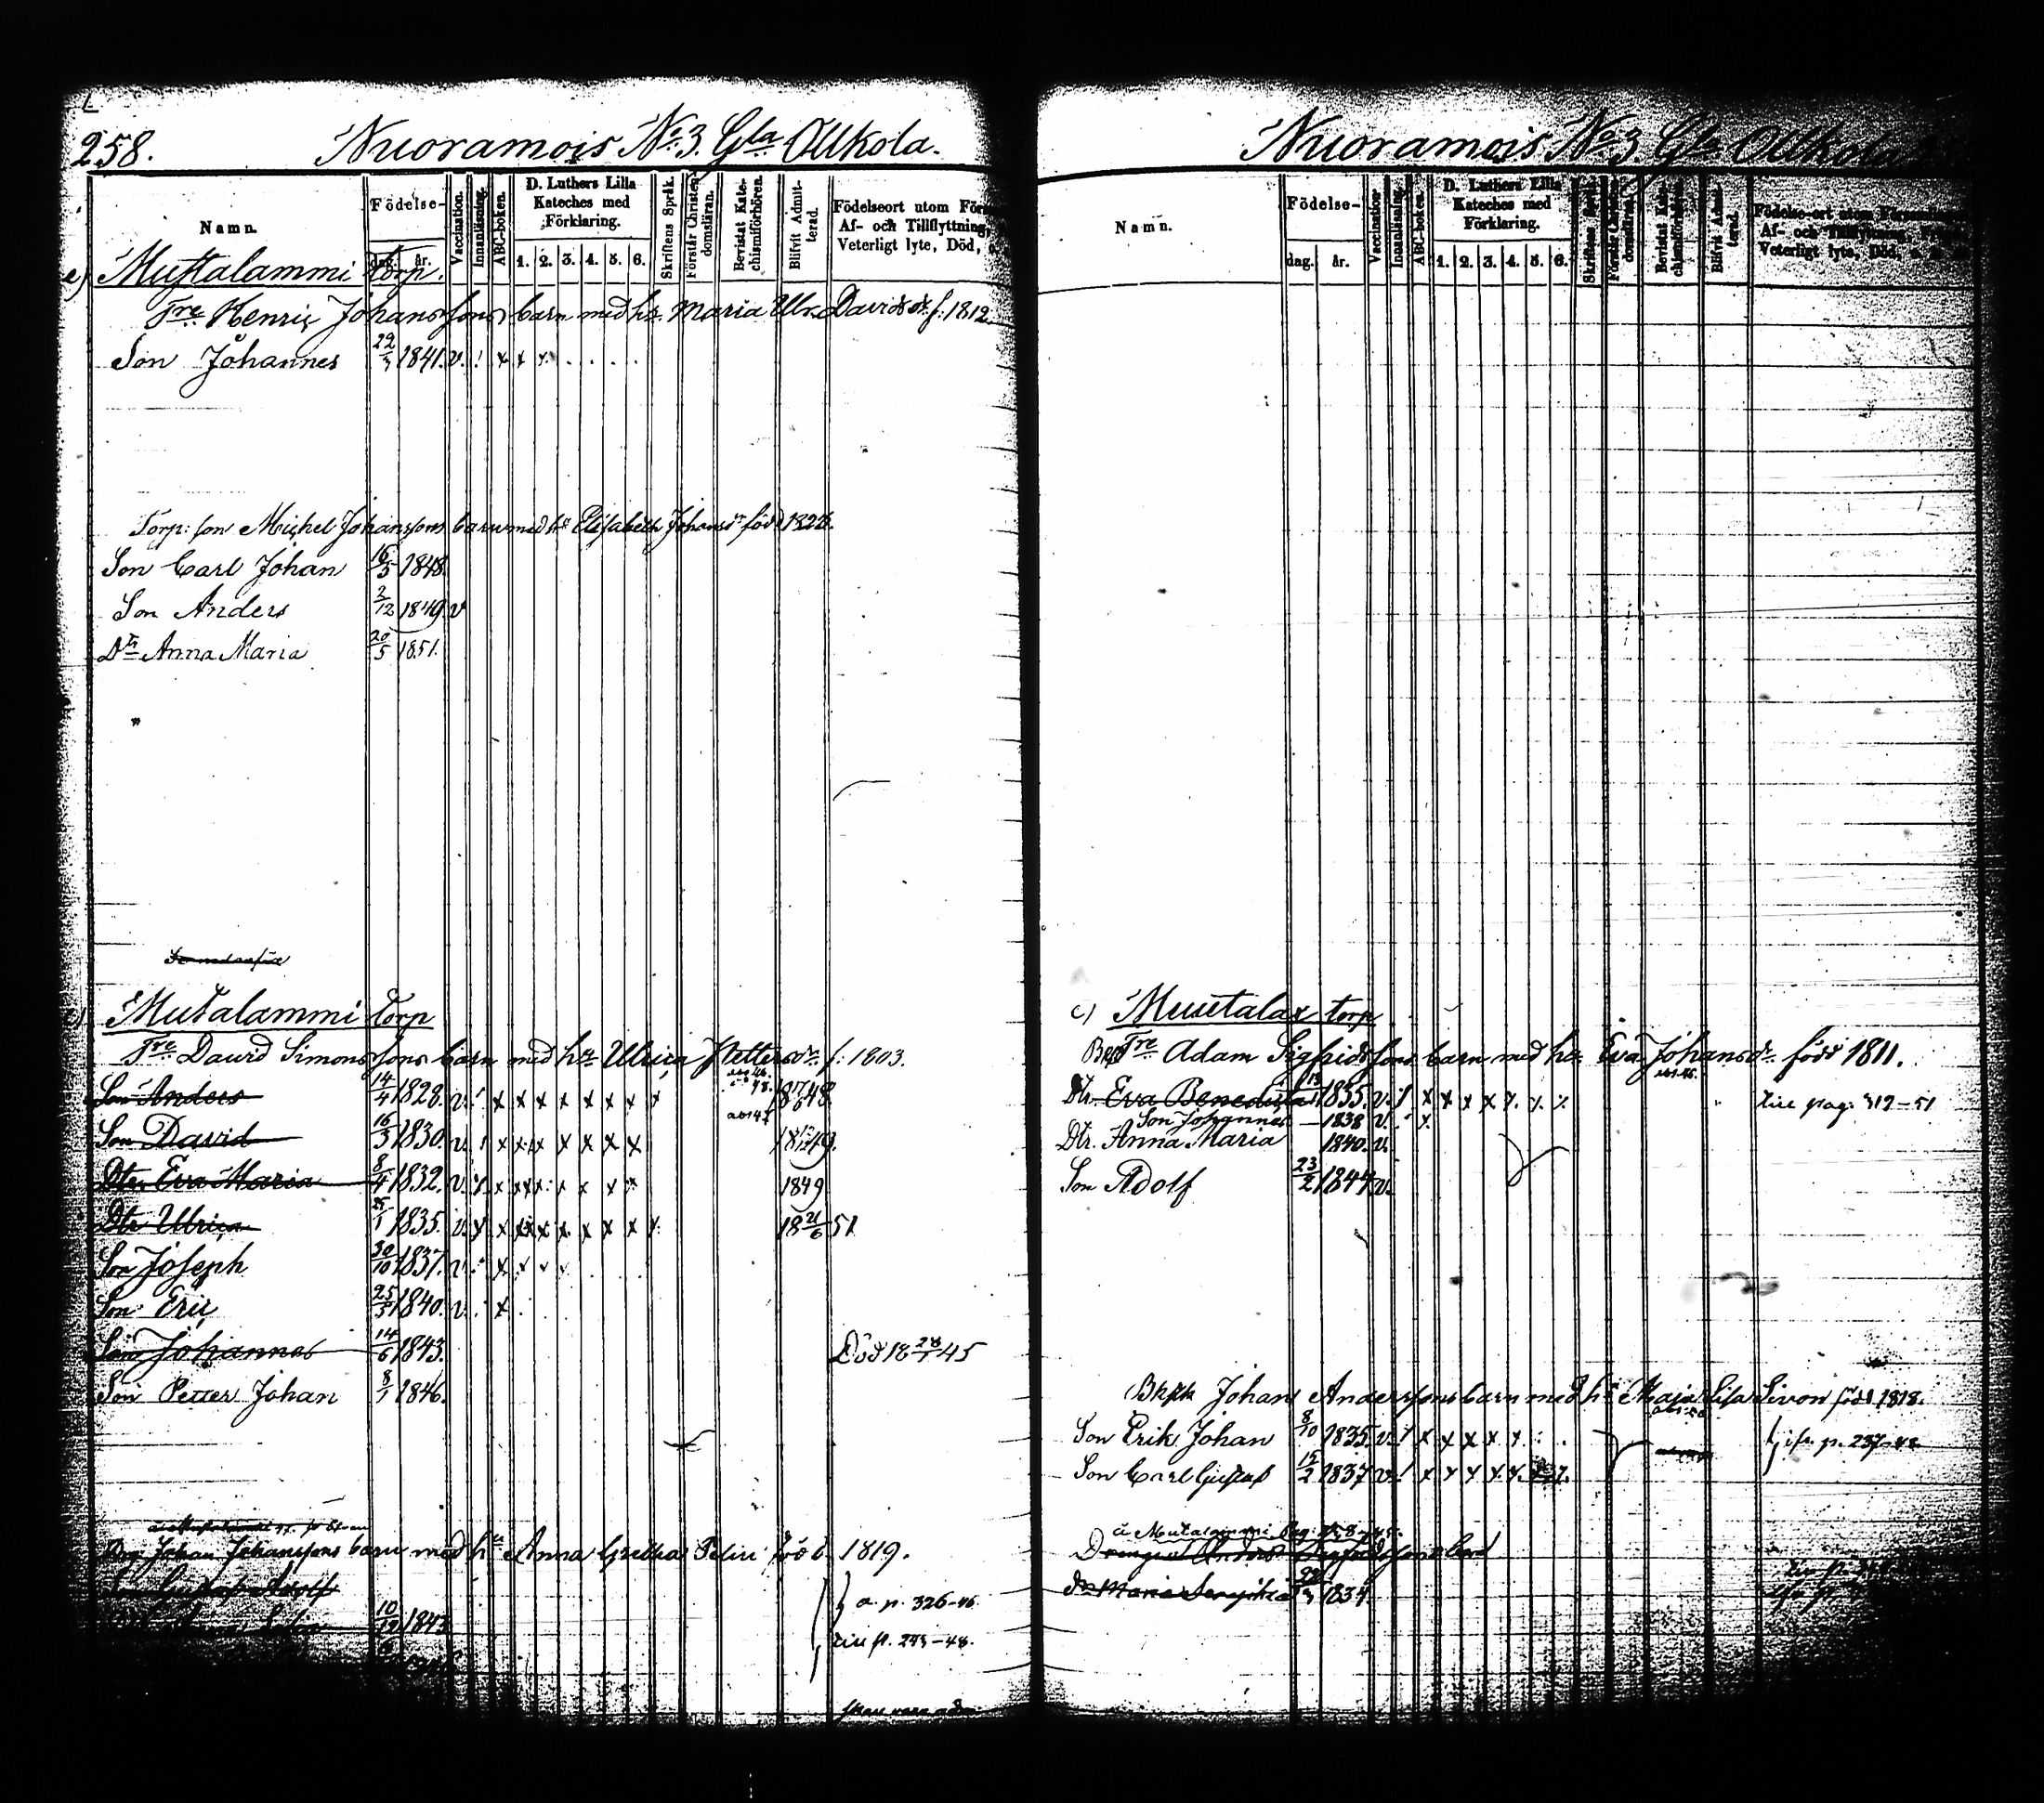 258.
Nuoramois No. 3. Gla Ollkola.
Namn.
Födelse-
dag. år.
Vaccination.
Innanläsning.
ABC-boken.
D. Luthers Lilla Kateches med Förklaring.
1. 2. 3. 4. 5. 6.
Skriftens Språk.
Förstår Christendomsläran.
Bevistat Katechismiförhören.
Blifvit Admitterad.
Födelseort utom För
Af- och Tillflyttning,
Veterligt lyte, Död,
e) Mustalammi torp.
Tre Henric Johanssons barn med h. Maria Ulr. Davidsdr f. 1812.
Son Johannes 22/3 1841. v. ! x x x . . . . .
Torp: son Michel Johanssons barn med h. Elisabeth Johansdr född 1828.
Son Carl Johan 16/5 1848.
Son Anders 2/12 1849. v
Dtr Anna Maria 20/5 1851.
Mutalammi Torp
Tre David Simonssons barn med hu Ulrica Pettersdr f. 1803.
Son Anders 14/4 1828. v. ! x x x x x x x x 48. 18 48
Son David 16/3 1830. v. ! x x x x x x x 18 49.
Dtr Eva Maria 8/4 1832. v. x x x x x x x 1849
Dtr Ulrica 1835. v. x x x x x x x x 18 21/6 51
Son Joseph 30/10 1837. v. x
Son Eric 25/3 1840. v. x
Son Johannes 14/6 1843. Död 18 28/1 45
Son Petter Johan 8/1 1846.
Drg Johan Johanssons barn med h Anna Gretha född 1819.
Adolf
a. p. 326-46.
10/12 1843
p. 293-48.
Nuoramois No 3 Gla Ollkola
Namn.
Födelse-
dag. år.
Vaccination
Innanläsning.
ABC-boken
D. Luthers Lilla Kateches med Förklaring.
1. 2. 3. 4. 5. 6.
Skriftens Språk.
Förstår Christendomsläran.
Bevistat Katechismiförhören.
Blifvit Admitterad.
Födelse-ort utom Församlingen
Af- och Tillflyttning,
Veterligt lyte, Död,
c) Muutalax torp
Tre Adam Sigfridssons barn med hu Eva Johansdr född 1811.
Dtr. Eva Benedicta 1835. v. x x x x x x x pag. 312-51
Son Johannes 1838 v. x
Dtr. Anna Maria 1840. v.
Son Adolf 23/2 1844 v.
Johan Anderssons barn med h Maja Lisa Sivon född 1818.
Son Erik Johan 8/10 1835. v. ! x x x x x p. 237-48
Son Carl Gustaf 12/2 1837 v. ! x x x x x x x
Drengen Anders Sigfridssons barn
Dr Maria Seraphia 1834